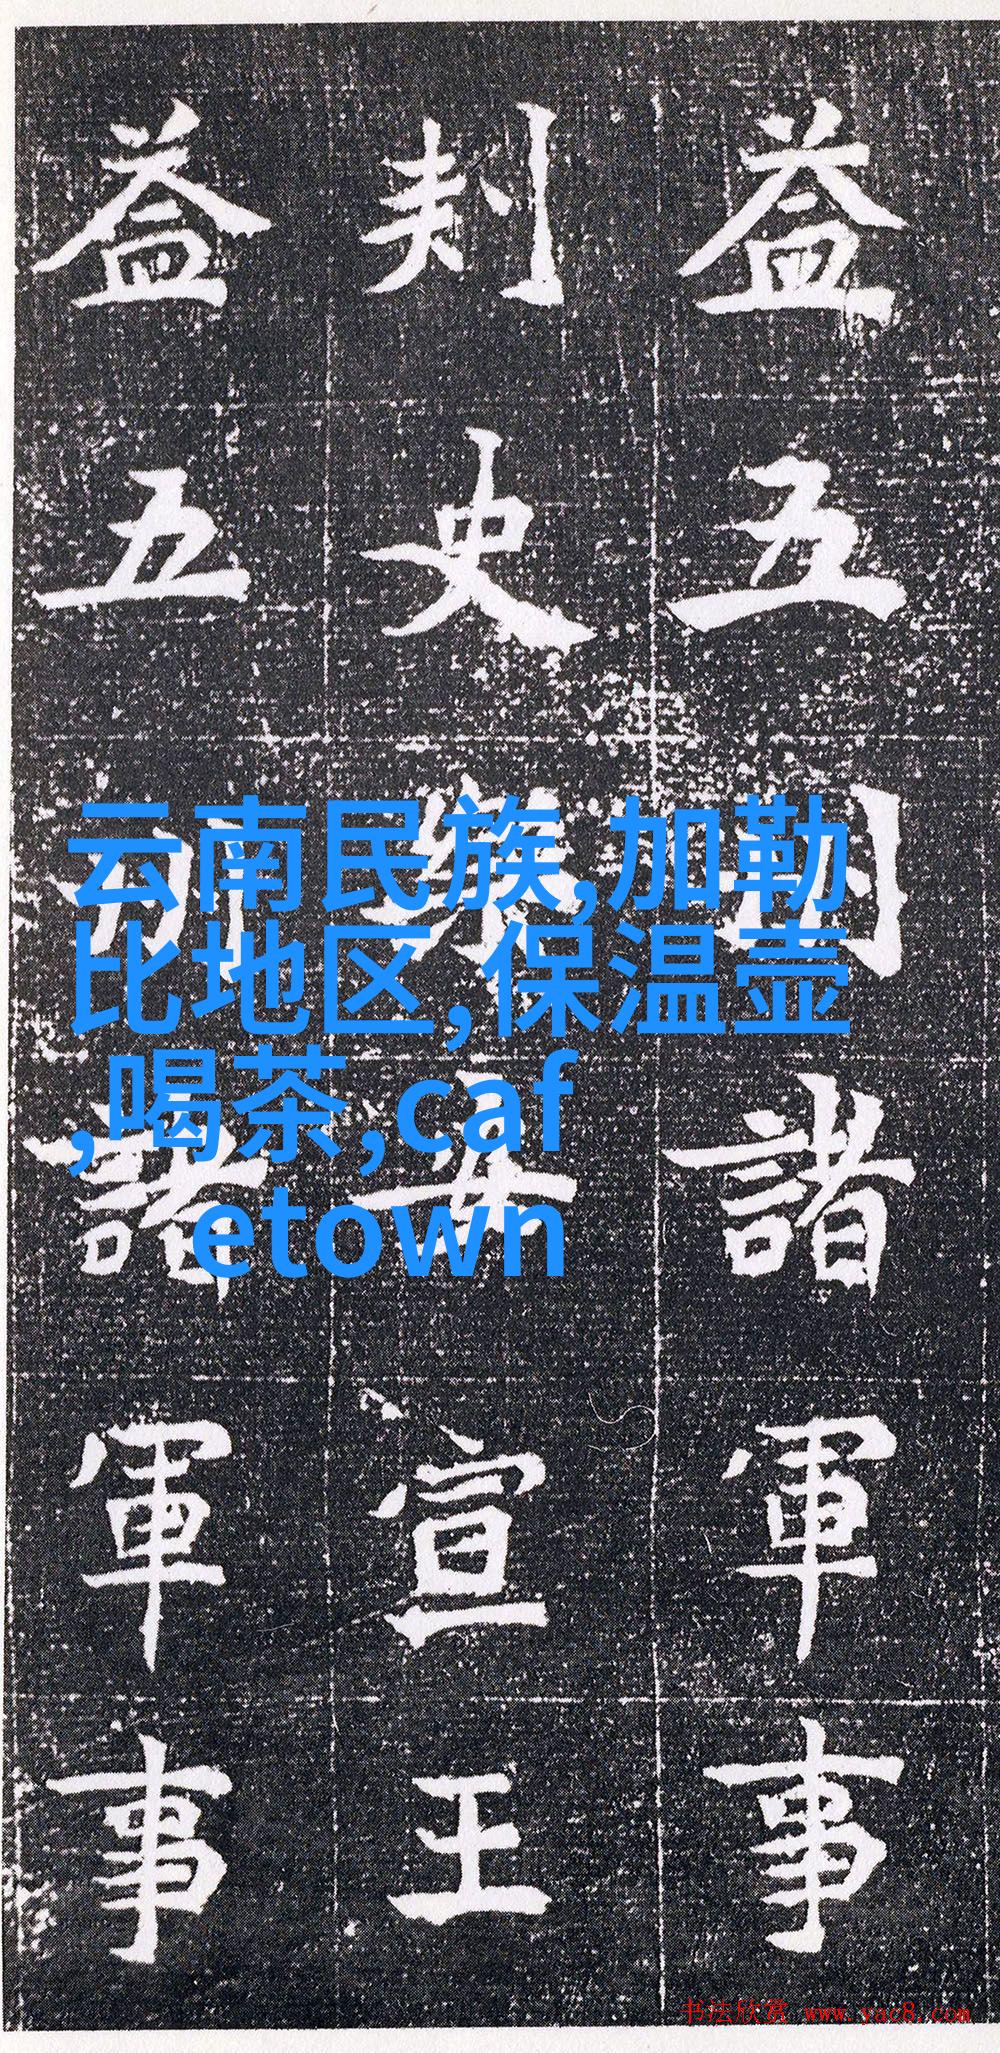 益五諸軍事
刾史安宣王
益五諸軍事
云南民族,加勒
比地区,保温壶
,喝茶,caf
etown
书法欣赏 www.yac8.com